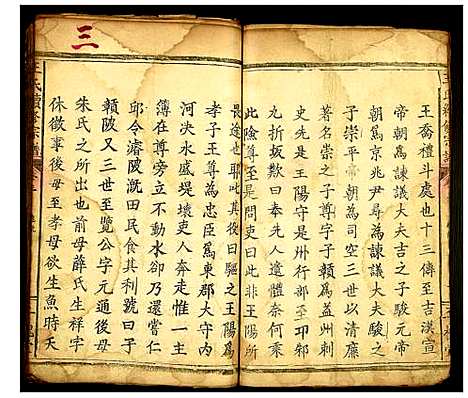 王喬禮斗處也十三傳至吉漢宣
帝朝為諫議大夫吉之子駿元帝
朝為京兆尹壽為諫議大夫駿之
子崇平帝朝為司空三世以清廉
著名崇之子尊字子贛為益州刺
史先是王陽守是州行部至卭郲
九折坂歎曰奉先人遺體奈何乘
此險尊至是問吏曰此非王陽所
畏途也耶吏曰是其後曰驅之王陽為
孝子王尊為忠臣為東郡大守內
河泱水盛堤壞吏人奔走惟一主
簿在尊旁立不動水卻乃還嘗仁
邱令濬陂溉田民食其利號曰子
贛陂又三世至覽公字元通後母
朱氏之所出也前母薛氏生祥字
休徵事後母至孝母欲生魚時天
三